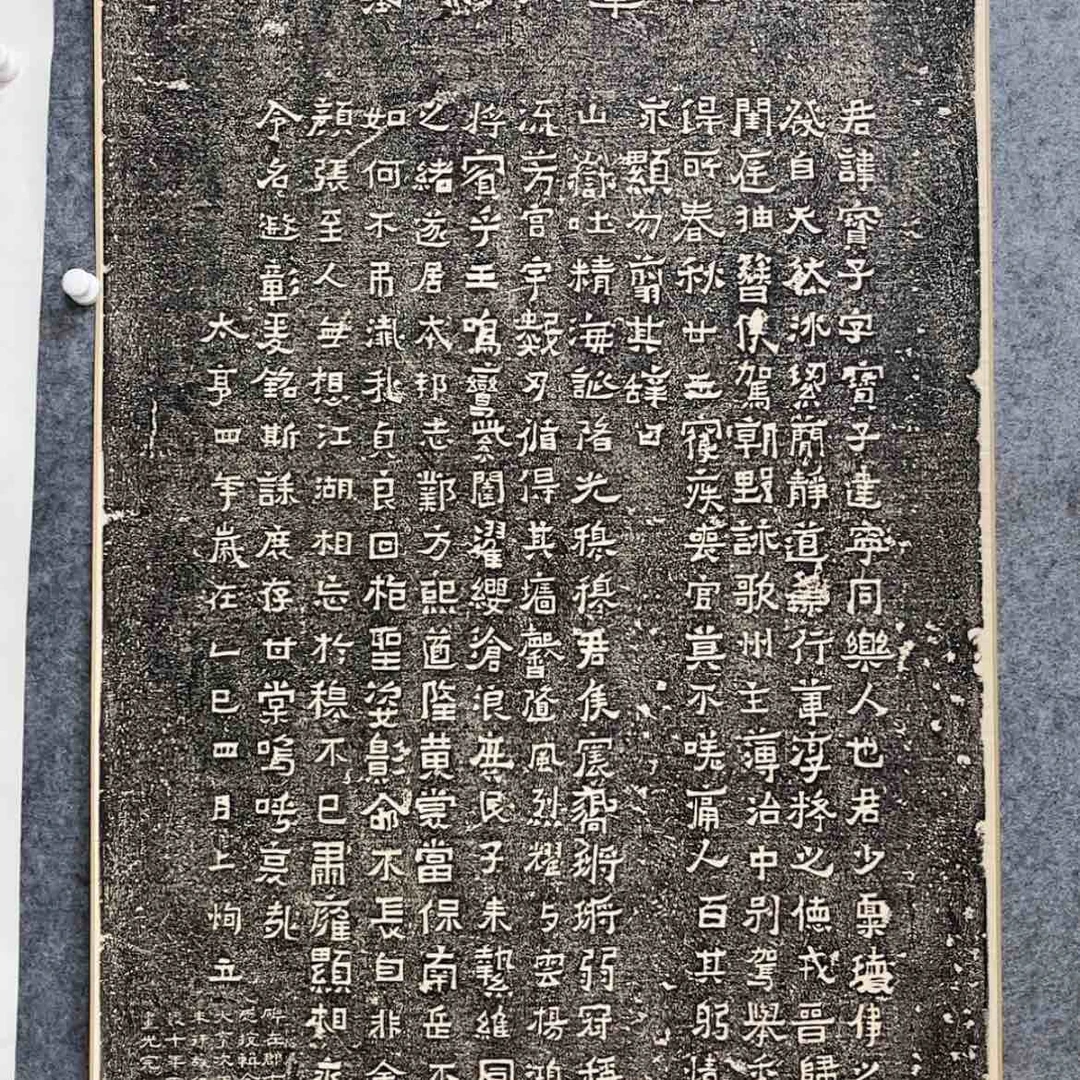 君諱寶子字寶子建寧同樂人也君少稟瓌偉之
發自天然冰絜簡靜道兼行葦淳粹之德戎晉歸
閨庭抽簪俟駕朝野詠歌州主簿治中別駕舉秀
得所春秋廿五寢疾喪官莫不嗟痛人百其躬情
永顯勿翦其辭曰
山嶽吐精海誕陼光穆穆君侯震響鏘鏘弱冠稱
流芳宮宇數仞循得其牆馨隨風烈耀與雲揚鴻
將賓乎王鳴鸞紫闥濯纓滄浪庶民子來縶維同
之緒遂居本邦志鄴方熙道隆黃裳當保南岳不
如何不弔殲我貞良回枹聖姿影命不長自非金
顏張至人無想江湖相忘於穆不已肅雍顯相永
令名遐彰爰銘斯誄庶存甘棠嗚呼哀哉
太亨四年歲在乙巳四月上恂立